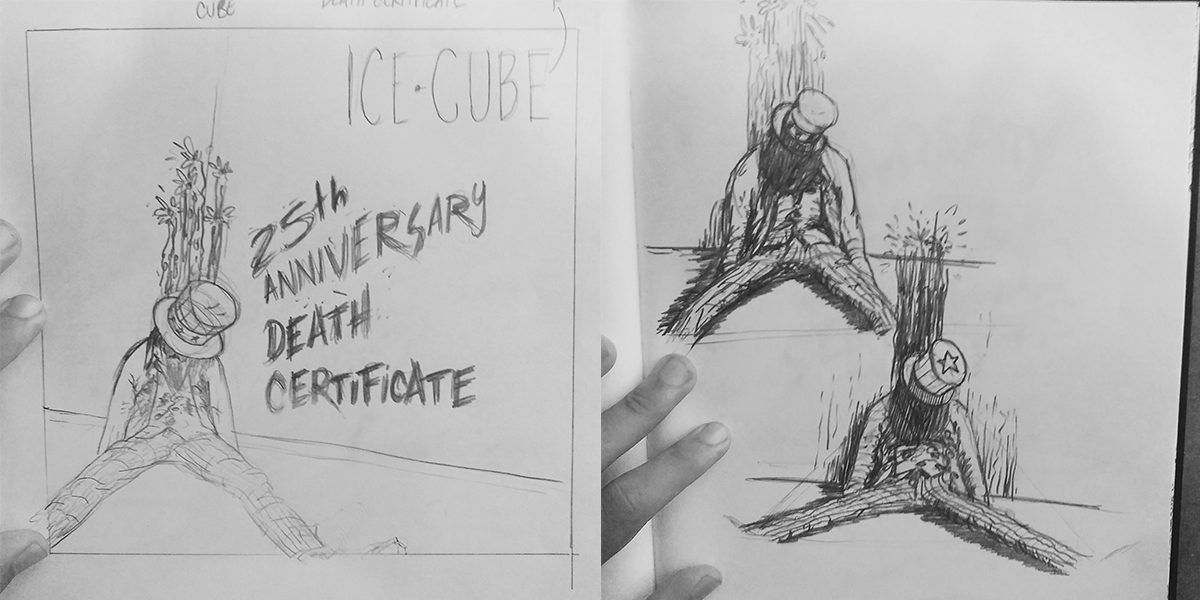 CUBE
DEATH CERTIFICATE
ICE•CUBE
25th
ANNIVERSARY
DEATH
CERTIFICATE